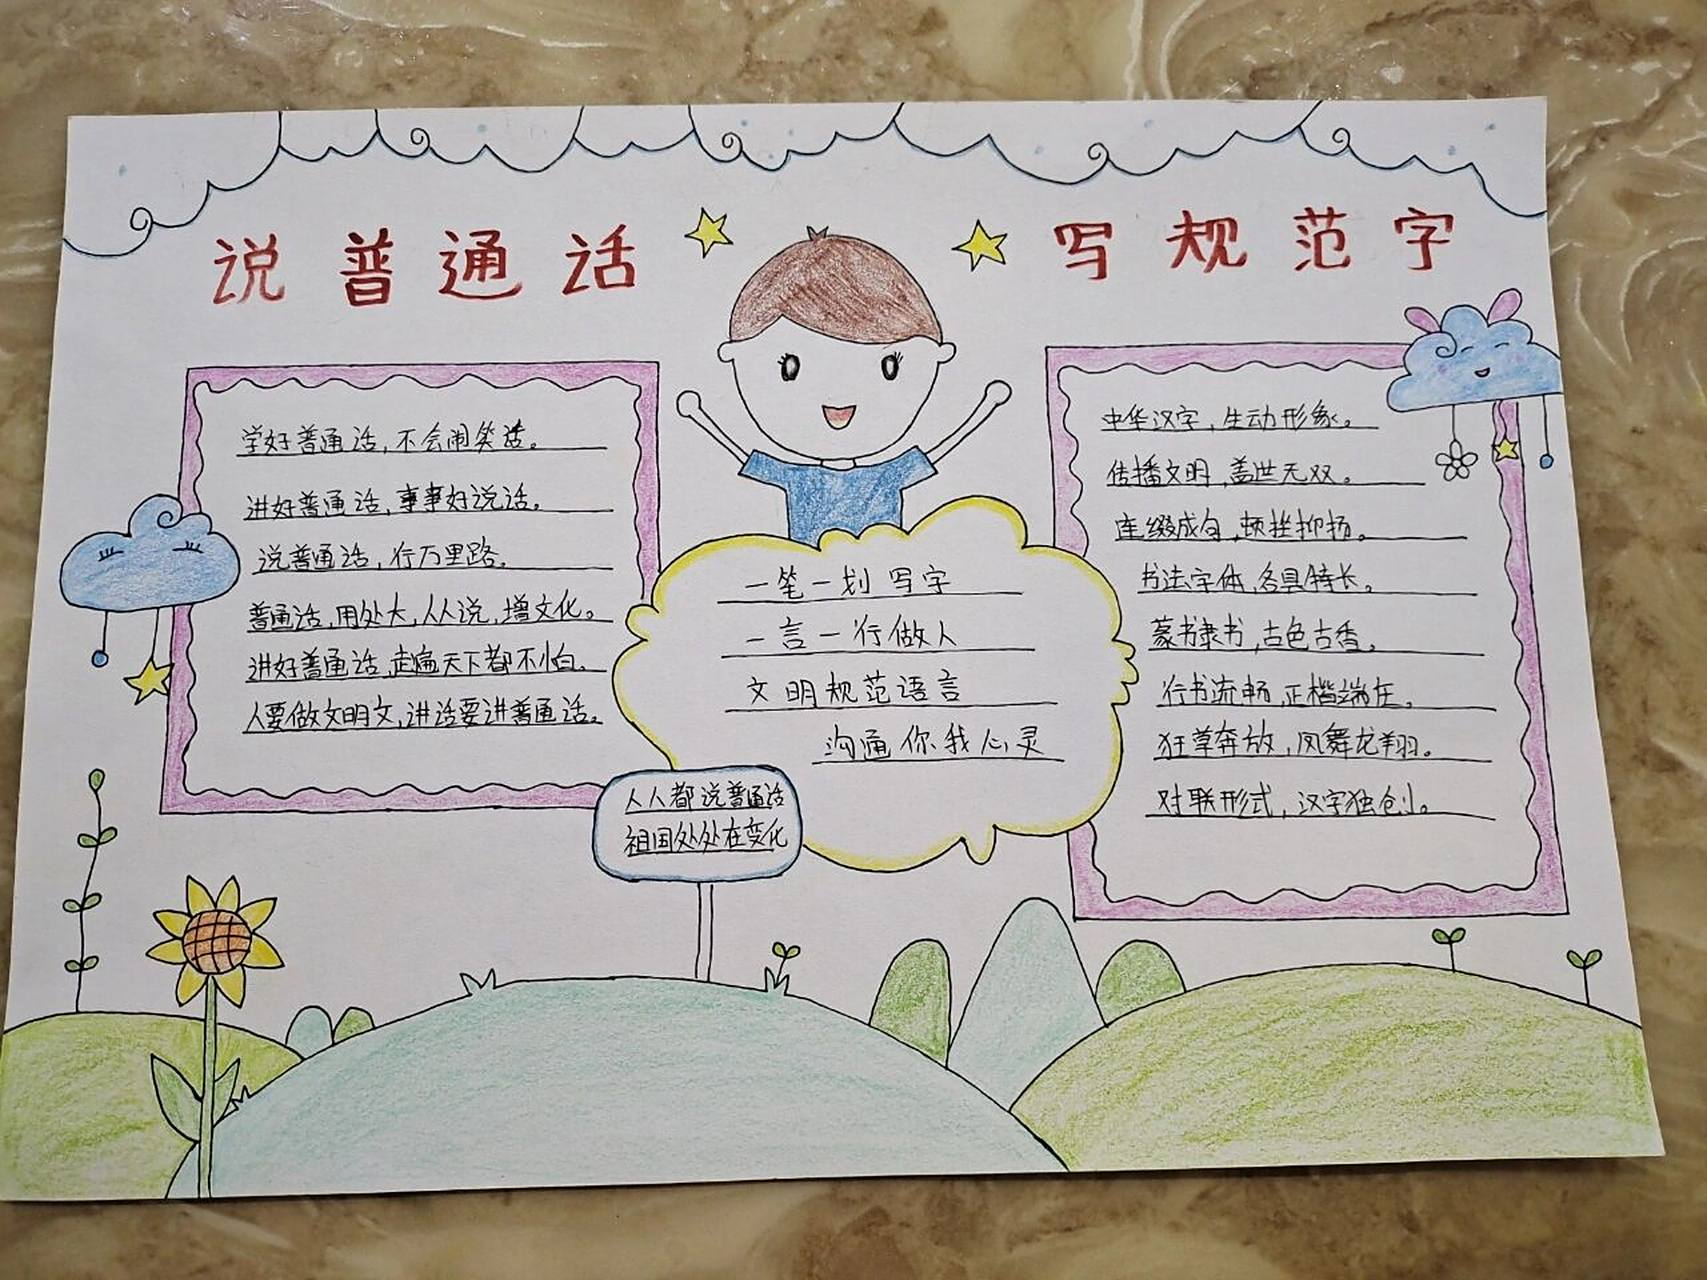 说普通话
写规范字
学好普通话,不会闹笑话。
讲好普通话,事事好说话。
说普通话,行万里路。
普通话,用处大,人人说,增文化。
讲好普通话,走遍天下都不怕。
人要做文明文,讲话要讲普通话。
一笔一划写字
一言一行做人
文明规范语言
沟通你我心灵
人人都说普通话
祖国处处在变化
中华汉字,生动形象。
传播文明,盖世无双。
连缀成句,顿挫抑扬。
书法字体,各具特长。
篆书隶书,古色古香。
行书流畅,正楷端庄。
狂草奔放,凤舞龙翔。
对联形式,汉字独创。